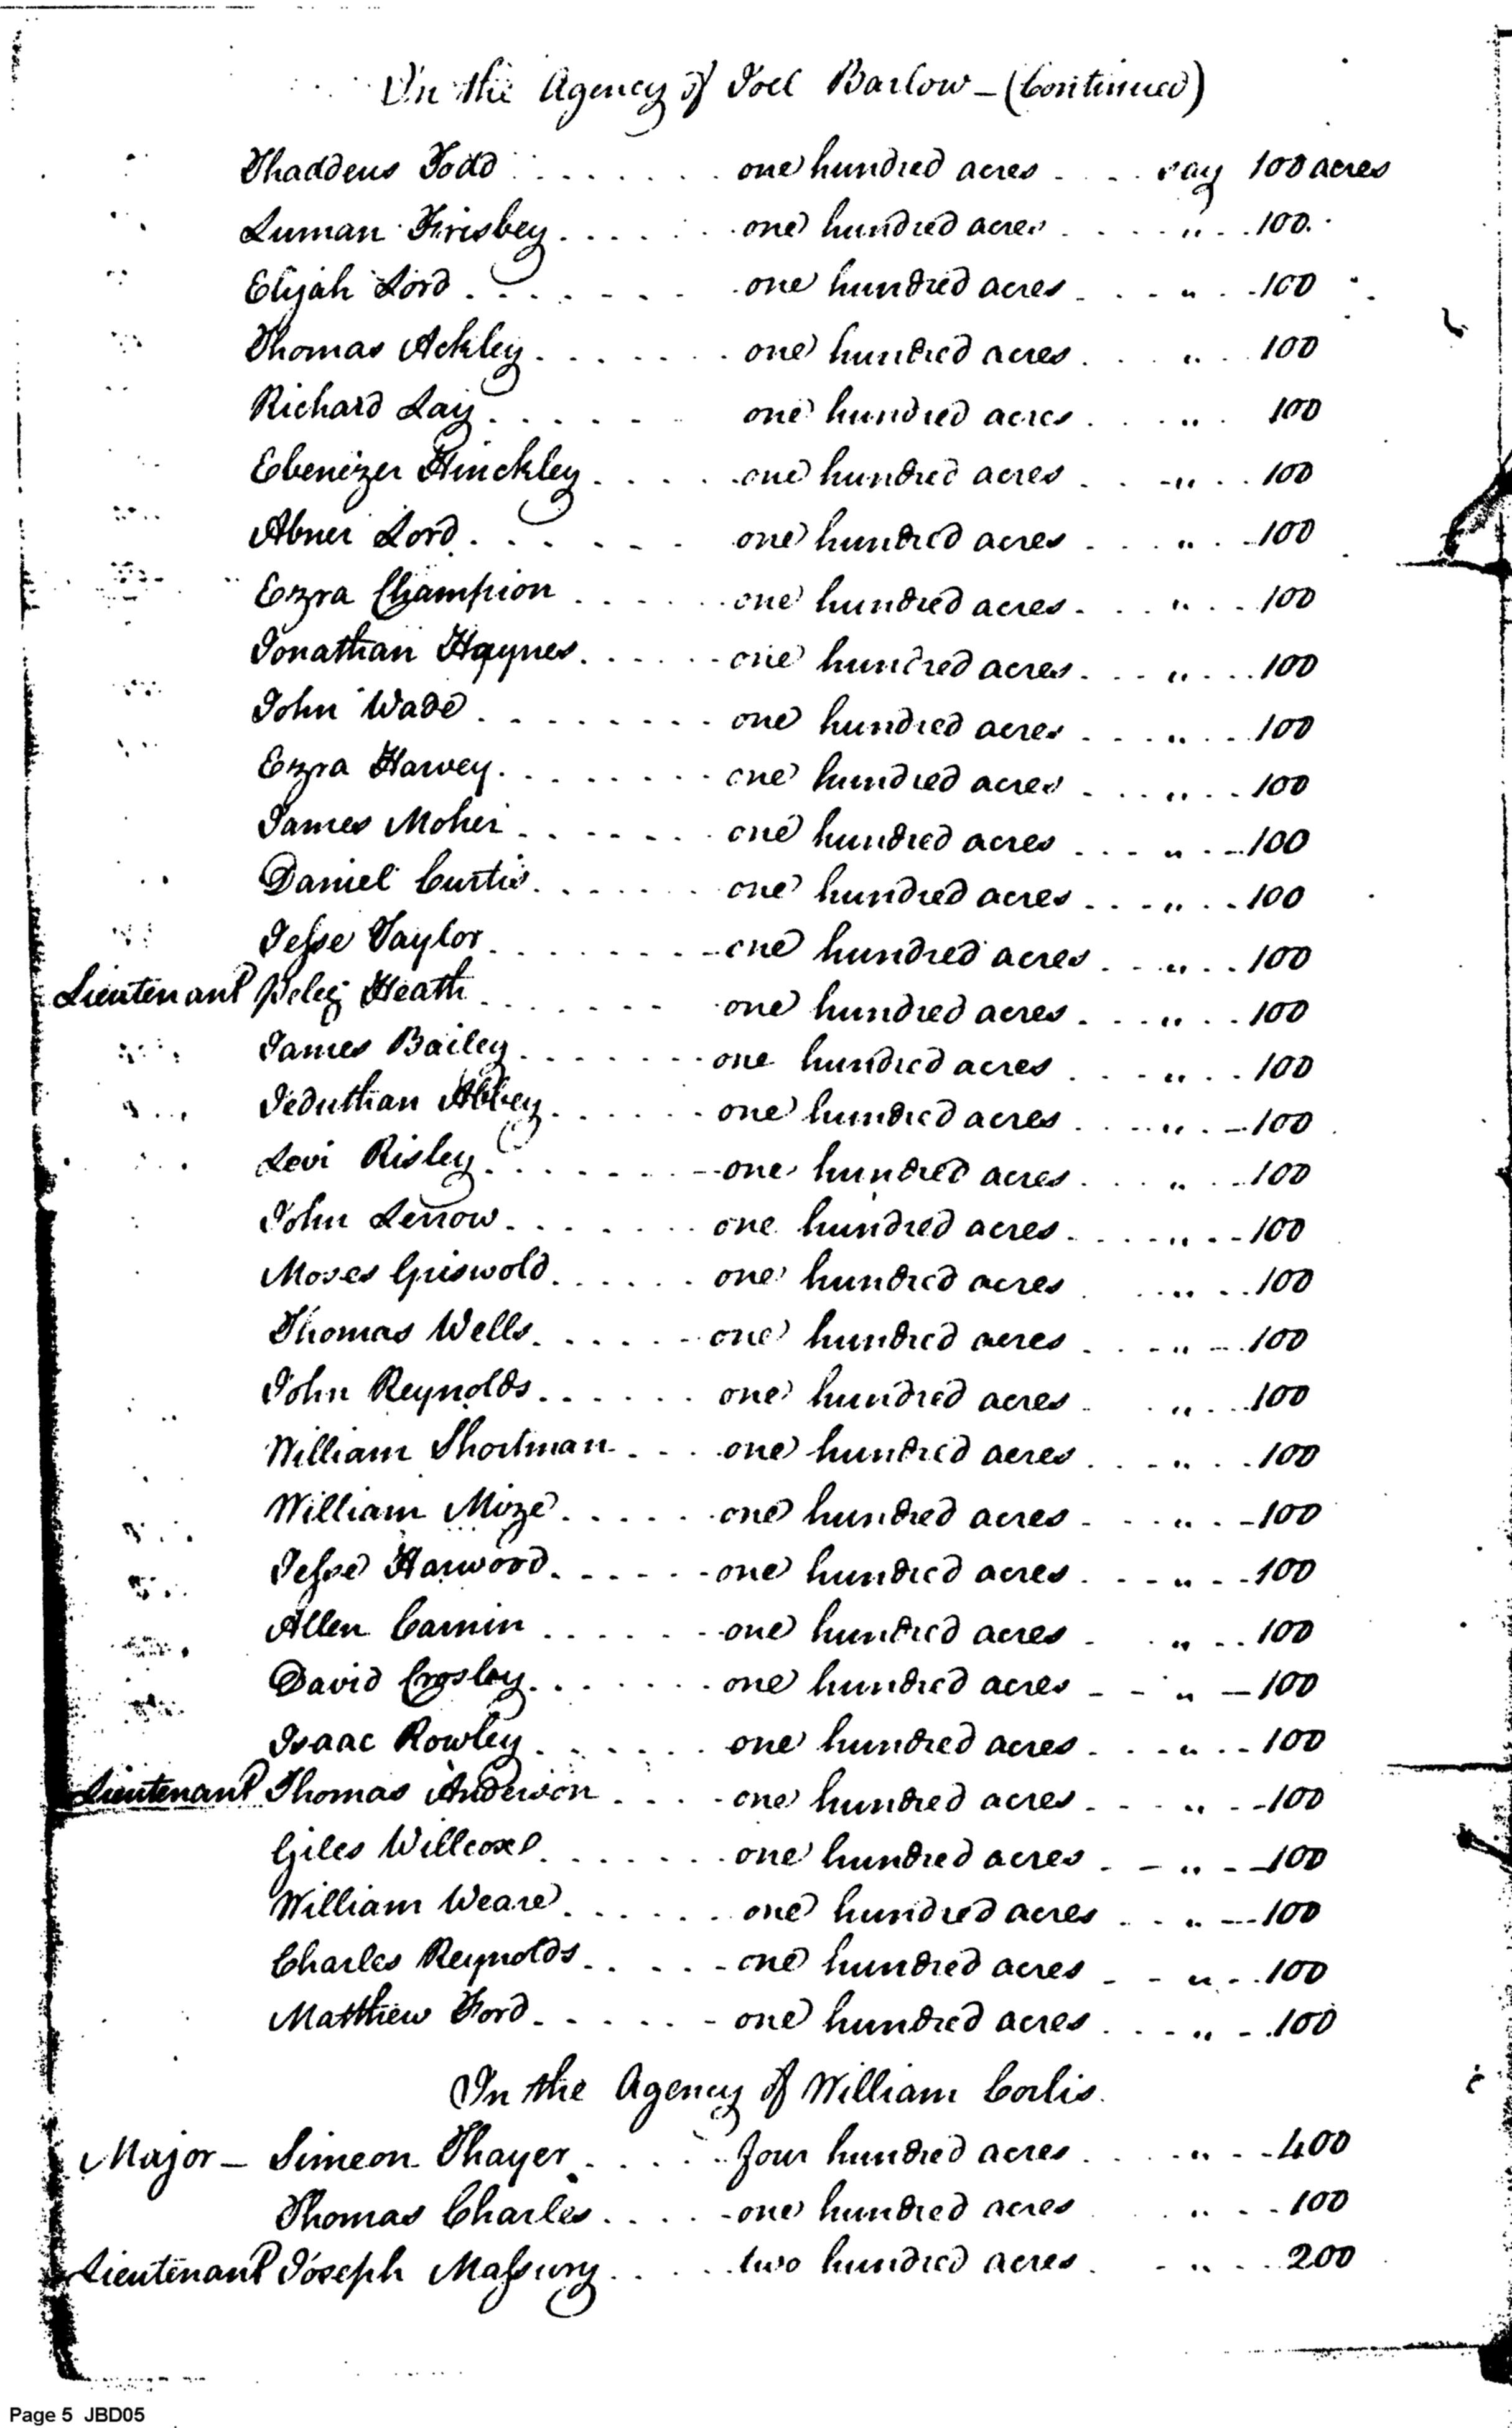 In the Agency of Joel Barlow – (Continued)
Thaddeus Todd . . . . . . . one hundred acres . . . . say 100 acres
Luman Frisbey . . . . . . one hundred acres . . . . " . . 100
Elijah Lord . . . . . . . one hundred acres . . . " . . 100
Thomas Ackley . . . . . . . one hundred acres . . . " . . 100
Richard Lay . . . . . . one hundred acres . . . . " . 100
Ebenezer Hinckley . . . . . one hundred acres . . . " . . 100
Abner Lord . . . . . . one hundred acres . . . " . . 100
Ezra Champion . . . . . . one hundred acres . . . " . . . 100
Jonathan Haynes . . . . . . one hundred acres . . . " . . . 100
John Wade . . . . . . . . one hundred acres . . . " . . . 100
Ezra Harvey . . . . . . . . one hundred acres . . . " . . . 100
James Moher . . . . . . . one hundred acres . . . " . . 100
Daniel Curtis . . . . . . . one hundred acres . . . " . . 100
Jesse Taylor . . . . . . . . one hundred acres . . . " . . 100
Lieutenant Peleg Heath . . . . . . . one hundred acres . . . " . . 100
James Bailey . . . . . . . one hundred acres . . . " . . 100
Jeduthan Abbey . . . . . . one hundred acres . . . " . . 100
Levi Risley . . . . . . . . one hundred acres . . . " . . 100
John Lerrow . . . . . . . one hundred acres . . . . " . . 100
Moses Griswold . . . . . . one hundred acres . . . " . . 100
Thomas Wells . . . . . . one hundred acres . . . " . . 100
John Reynolds . . . . . . one hundred acres . . " . . . 100
William Shortman . . . . one hundred acres . . . " . . 100
William Mize . . . . . . one hundred acres . . . " . . 100
Jesse Harwood . . . . . . one hundred acres . . . " . . 100
Allen Camin . . . . . . one hundred acres . . " . . 100
David Crosley . . . . . . . one hundred acres – – " – 100
Isaac Rowley . . . . . . one hundred acres . . . " . . 100
Lieutenant Thomas Anderson . . . . one hundred acres . . . " . . 100
Giles Willcox . . . . . . . one hundred acres . – " – 100
William Weare . . . . . . one hundred acres . . . " – 100
Charles Reynolds . . . . . one hundred acres – – " . . 100
Matthew Ford . . . . . . one hundred acres . . . " . . 100
In the Agency of William Corlis.
Major – Simeon Thayer . . . . . four hundred acres . . . " . . 400
Thomas Charles . . . . . one hundred acres " . . 100
Lieutenant Joseph Massury . . . . . two hundred acres . . " . . . 200
Page 5 JBD05